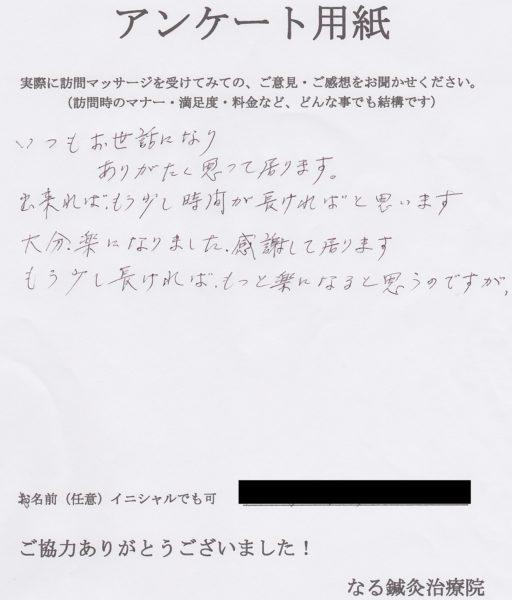 アンケート用紙
実際に訪問マッサージを受けてみての、ご意見・ご感想をお聞かせください。
（訪問時のマナー・満足度・料金など、どんな事でも結構です）
いつもお世話になり
ありがたく思って居ります。
出来れば、もう少し時間が長ければと思います
大分、楽になりました、感謝して居ります
もう少し長ければ、もっと楽になると思うのですが、
お名前（任意）イニシャルでも可
ご協力ありがとうございました！
なる鍼灸治療院